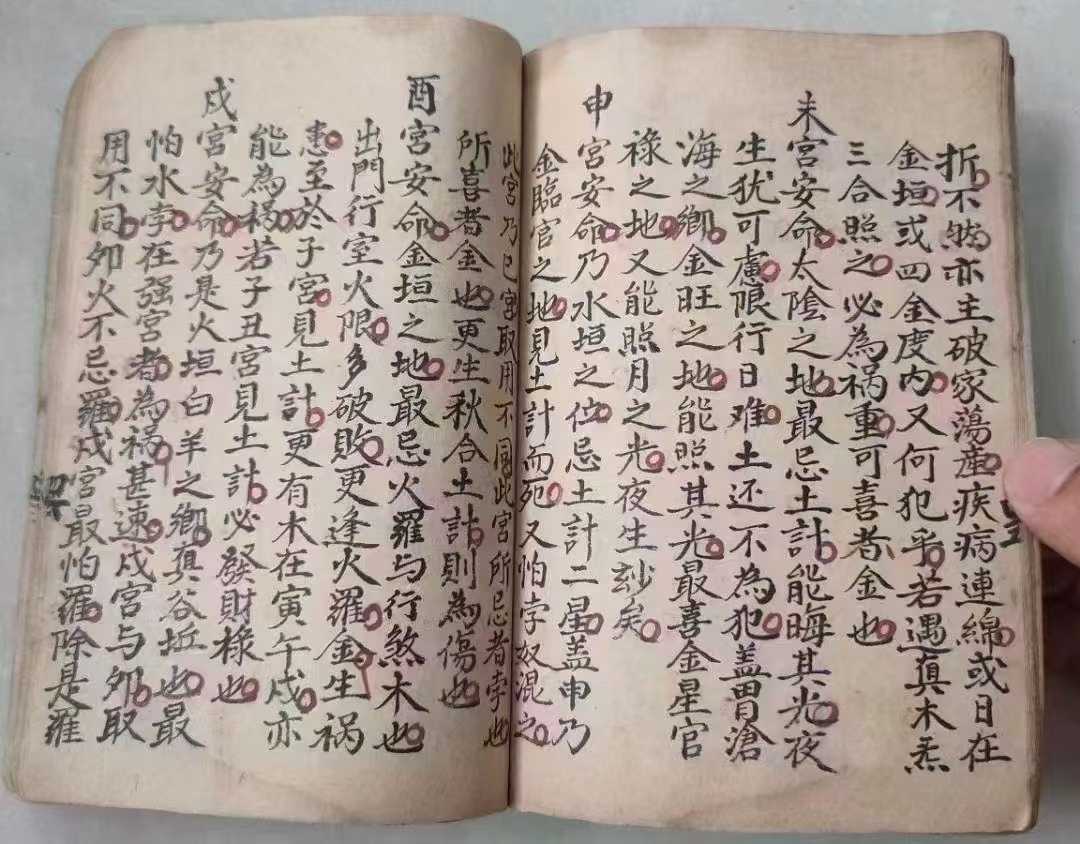 折不然亦主破家蕩產疾病連綿或日在
金垣或四金度內又何犯乎若遇真木炁
三合照之必為禍重可喜者金也
未宮安命太陰之地最忌土計能晦其光夜
生犹可慮限行日难土还不為犯盖胃滄
海之鄉金旺之地能照其光最喜金星官
祿之地又能照月之光夜生玅矣
申宮安命乃水垣之位忌土計二星盖申乃
金臨官之地見土計而死又怕孛奴混之
此宮乃巳宮取用不同此宮所忌者孛也
所喜者金也更生秋合土計則為傷也
酉宮安命金垣之地最忌火羅与行煞木也
出門行室火限多破敗更逢火羅金生禍
患至於子宮見土計更有木在寅午戌亦
能為禍若子丑宮見土計必發財祿也
戌宮安命乃是火垣白羊之鄉真谷坵也最
怕水孛在强宮者為禍甚速戌宮与夘取
用不同夘火不忌羅戌宮最怕羅除是羅